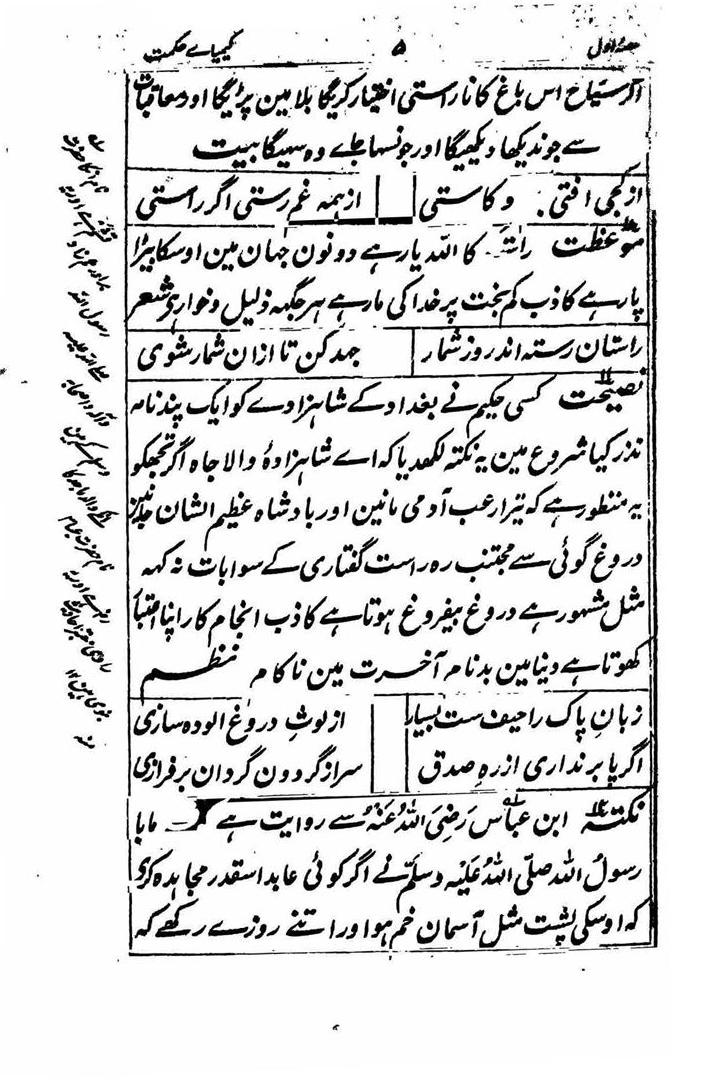 حصۂ اول ۵ کیمیاے حکمت
اگر سیاح اس باغ کا ناراستی اختیار کریگا بلا مین پڑیگا اور معاقبات
سے جو ندیکھا دیکھیگا اور جو نسہا جاے وہ سہیگا بیت
از کجی افتی. و کاستی از ہمہ غم رستی اگر راستی
موعظت راست کا اللہ یار ہے دونون جہان مین اوسکا بیڑا
پار ہے کاذب کم بخت پر خدا کی مار ہے ہر جگہہ ذلیل و خوار ہی شعر
راستان رستہ اند روز شمار جہد کن تا ازان شمار شوی
نصیحت کسی حکیم نے بغداد کے شاہزادے کو ایک پندنامہ
نذر کیا شروع مین یہ نکتہ لکھدیا کہ اے شاہزادۂ والا جاہ اگر تجھکو
یہ منظور ہے کہ تیرا رعب آدمی مانین اور بادشاہ عظیم الشان جانین
دروغ گوئی سے مجتنب رہ راست گفتاری کے سوا بات نہ کہہ
مثل مشہور ہے دروغ بیفروغ ہوتا ہے کاذب انجام کار اپنا اعتبار
کھوتا ہے دنیا مین بدنام آخرت مین ناکام نظم
زبان پاک را حیف ست بسیار از لوثِ دروغ الودہ سازی
اگر پا برنداری از رہِ صدق سر از گردون گردان بر فرازی
نکتہ ابن عباس رَضِیَ اللہُ عَنْہُ سے روایت ہے مابا
رسولُ اللہ صلّی اللہُ عَلَیْہِ وسلّم نے اگر کوئی عابد اسقدر مجاہدہ کری
کہ اوسکی پشت مثل آسمان خم ہو اور اتنے روزے رکھے کہ
نام انکا حضرت
رسول اللہ
صلے اللہ علیہ
وآلہ واصحابہ
نام حضرت
منہ